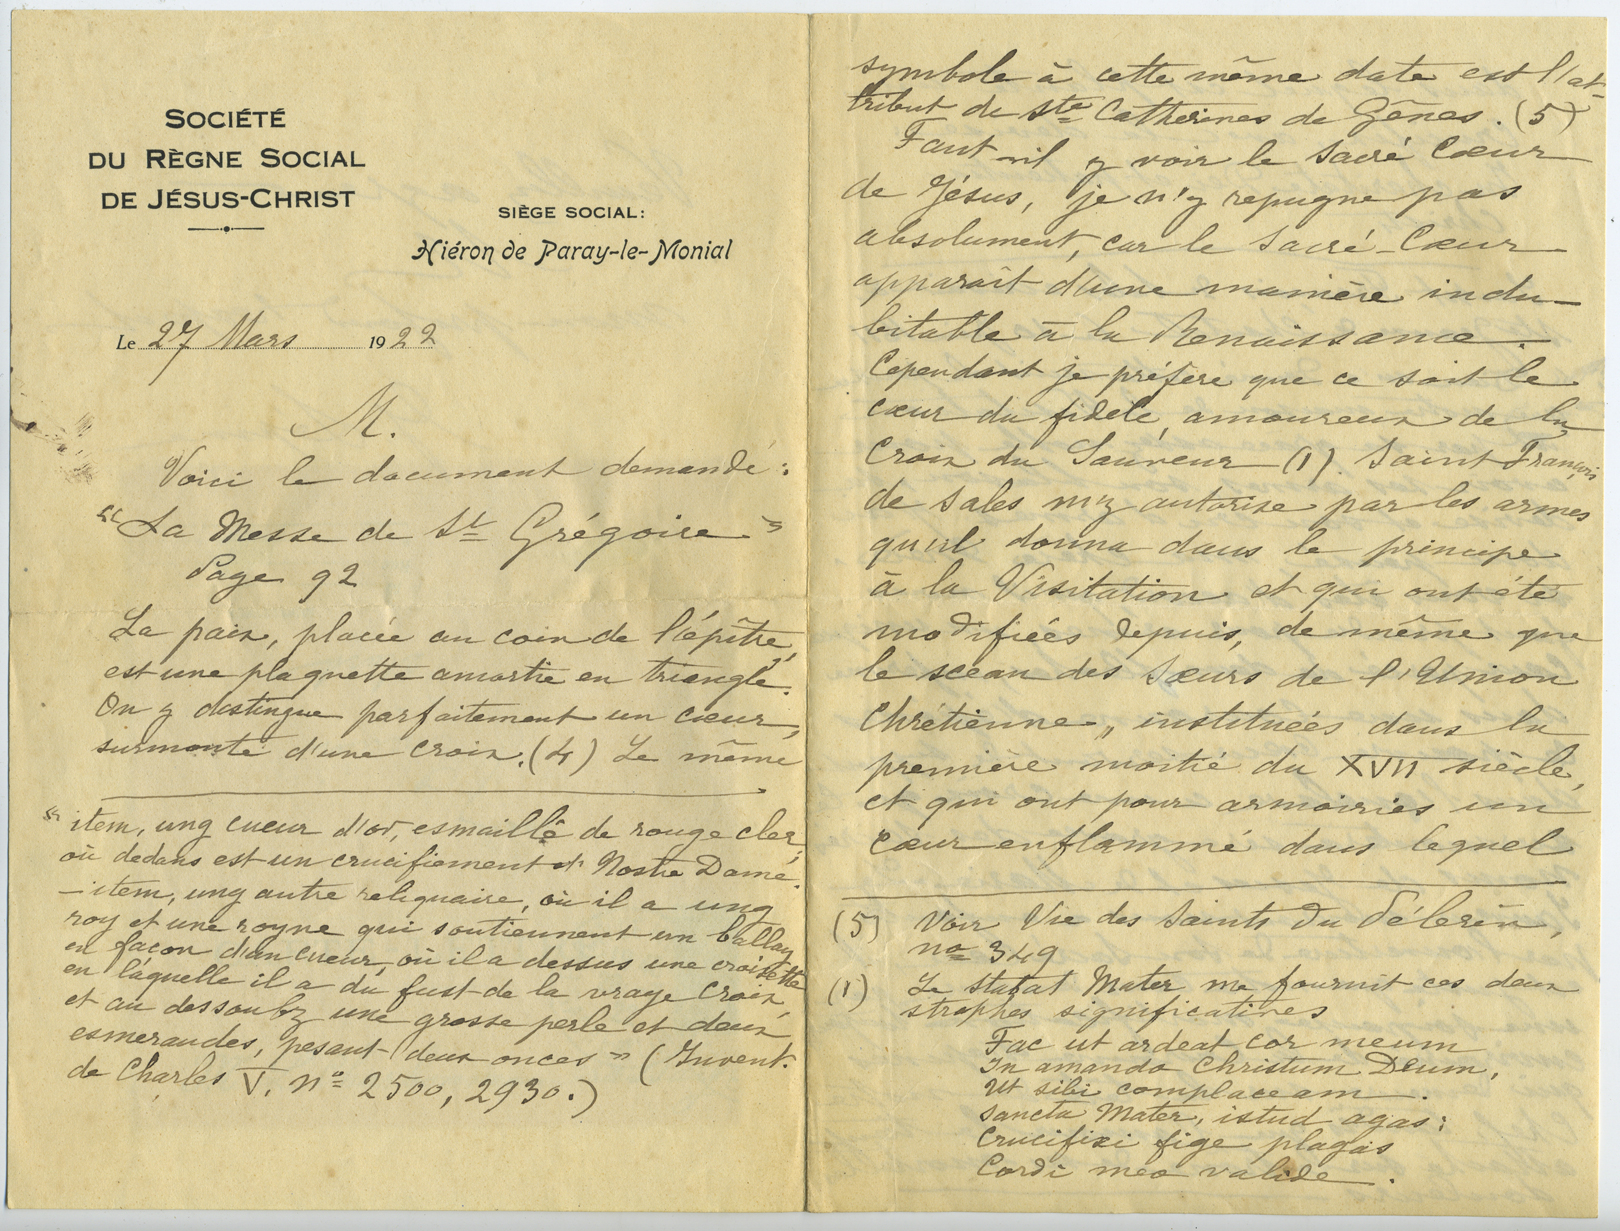 SOCIÉTÉ
DU RÈGNE SOCIAL
DE JÉSUS-CHRIST
SIÈGE SOCIAL:
Hiéron de Paray-le-Monial
Le 27 Mars 1922
M.
Voici le document demandé:
"La Messe de St Grégoire"
Page 92
La paix, placée au coin de l'épître,
est une plaquette amortie en triangle.
On y distingue parfaitement un cœur,
surmonté d'une croix. (4) Le même
"item, ung cueur d'or, esmaillé de rouge cler,
où dedans est un crucifiement et Nostre Dame.
– item, ung autre reliquaire, où il a ung
roy et une royne qui soutiennent un ballay
en façon d'un cueur, où il a dessus une croisette
en laquelle il a du fust de la vraye Croix,
et au dessoubz une grosse perle et deux
esmeraudes, pesant deux onces" (Invent.
de Charles V. no 2500, 2930.)
symbole à cette même date est l'at-
tribut de Ste Catherines de Gênes. (5)
Faut-il y voir le Sacré Cœur
de Jésus, je n'y repugne pas
absolument, car le Sacré-Cœur
apparait d'une manière indu-
bitable à la Renaissance.
Cependant je préfère que ce soit le
cœur du fidèle, amoureux de la
Croix du Sauveur (1). Saint François
de Sales m'y autorise par les armes
qu'il donna dans le principe
à la Visitation et qui ont été
modifiées depuis, de même que
le sceau des Sœurs de l'Union
Chrétienne, instituées dans la
première moitié du XVII siècle,
et qui ont pour armoiries un
cœur enflammé dans lequel
(5) Voir Vie des Saints du Pélerin,
no 349
(1) Le Stabat Mater me fournit ces deux
strophes significatives
Fac ut ardeat cor meum
In amando Christum Deum,
Ut sibi complaceam.
Sancta Mater, istud agas:
Crucifixi fige plagas
Cordi meo valide.